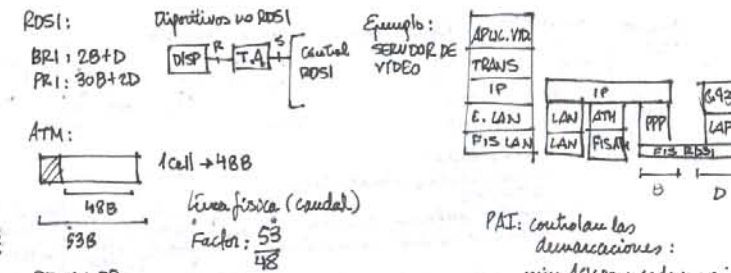 RDSI:
BRI: 2B+D
PRI: 30B+2D
Dispositivos no RDSI
DISP R T.A S Central RDSI
Ejemplo:
SERVIDOR DE VÍDEO
APLIC. VID.
TRANS
IP
E. LAN
FIS LAN
IP
LAN ATM PPP
LAN FIS
FIS RDSI
B D
ATM:
1 cell → 48B
48B
53B
Línea física (caudal)
Factor: 53
48
PAI: controlan las
demarcaciones: